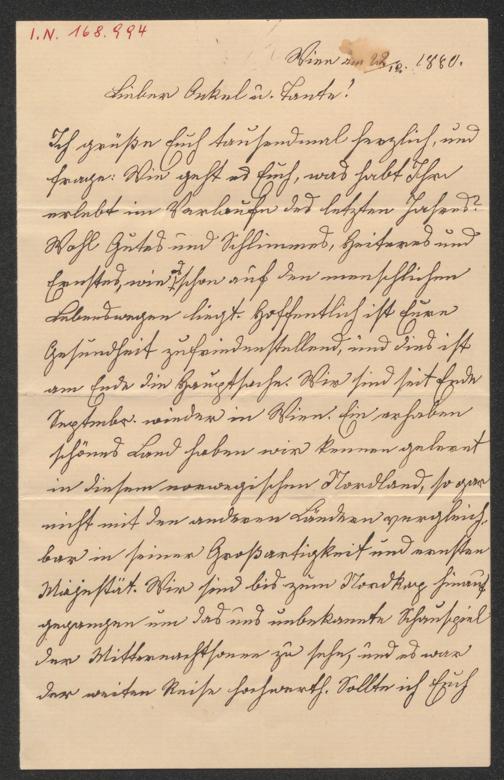 I.N. 168.994
Wien am 22/12. 1880.
Lieber Onkel u. Tante!
Ich grüße Euch tausendmal herzlich, und
frage: Wie geht es Euch, was habt Ihr
erlebt im Verlaufe des letzten Jahres?
Wohl Gutes und Schlimmes, Heiteres und
Ernstes, wie es schon auf den menschlichen
Lebenswegen liegt. Hoffentlich ist Eure
Gesundheit zufriedenstellend, und dies ist
am Ende die Hauptsache. Wir sind seit Ende
Septmbr. wieder in Wien. Ein erhaben
schönes Land haben wir kennen gelernt
in diesem norwegischen Nordland, so gar
nicht mit den anderen Ländern vergleich-
bar in seiner Großartigkeit und ernsten
Majestät. Wir sind bis zum Nordkap hinauf
gegangen um das uns unbekannte Schauspiel
der Mitternachtsonne zu sehn, und es war
der weiten Reise hochwerth. Sollte ich Euch